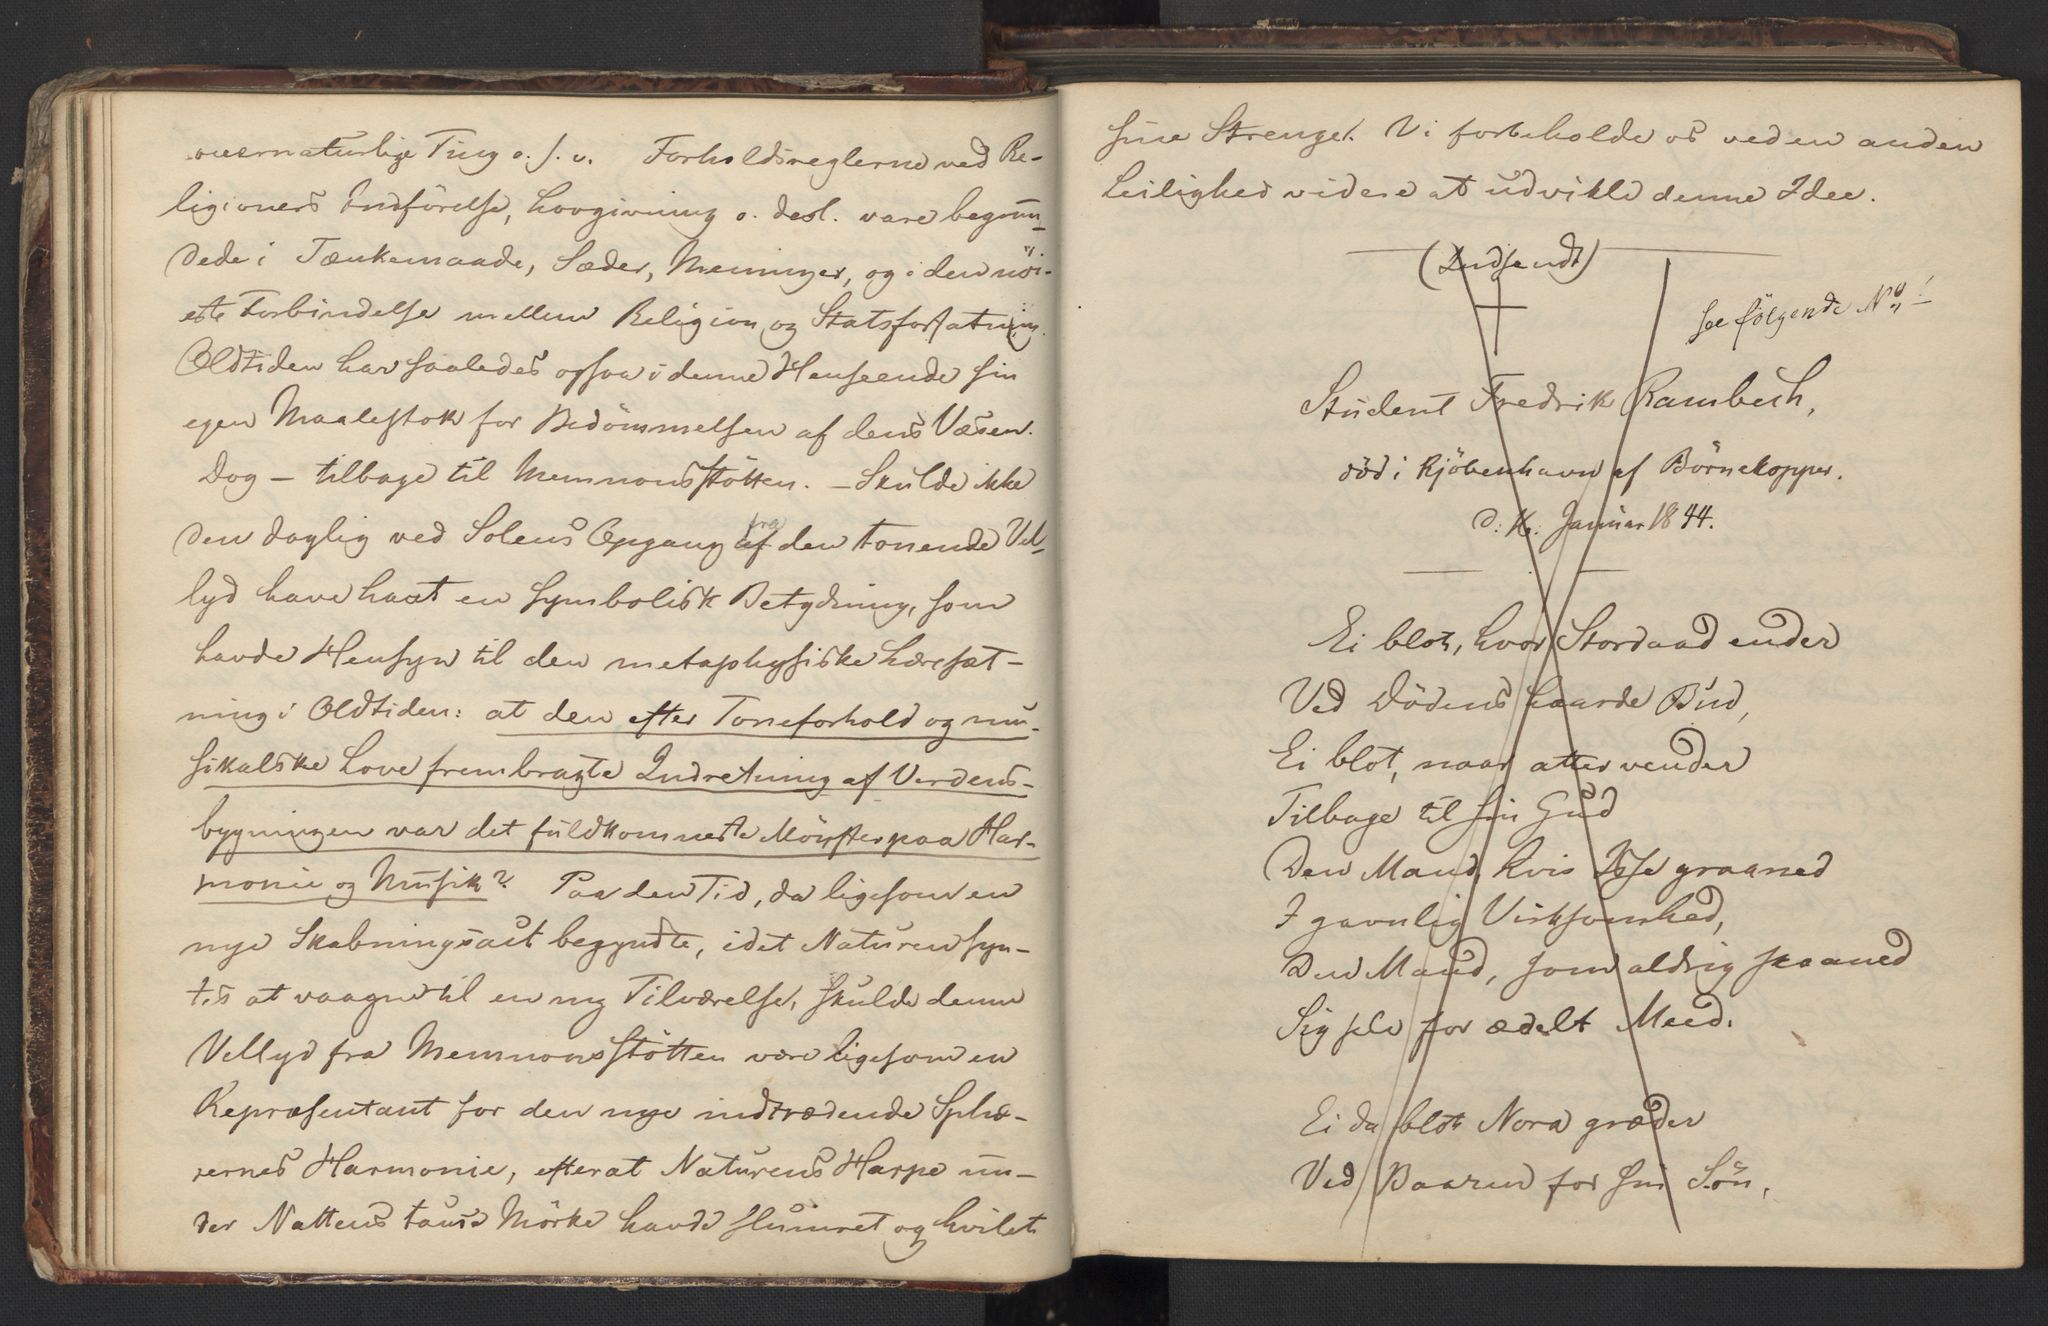 overnaturlige Ting o. s. v. Forholdsreglerne ved Re-
ligioners Indförelse, Lovgivning o. desl. vare begrun-
dede i Tænkemaade, Sæder, Meninger, og i den nöi-
este Forbindelse mellem Religion og Statsforfatning.
Oldtiden har saaledes ogsaa i denne Henseende sin
egen Maalestok for Bedömmelsen af dens Væsen.
Dog – tilbage til Memnonsstötten. – Skulde ikke
den daglig ved Solens Opgang af fra den tonende Vel-
lyd have havt en symbolisk Betydning, som
havde Hensyn til den metaphysiske Læresæt-
ning i Oldtiden: at den efter Toneforhold og mu-
sikalske Love frembragte Indretning af Verdens-
bygningen var det fuldkomneste Mönster paa Har-
monie og Musik? Paa den Tid, da ligesom en
nye Skabningsact begyndte, idet Naturen syn-
tes at vaagne til en ny Tilværelse, skulde denne
Vellyd fra Memnonsstötten være ligesom en
Repræsentant for den nye indtrædende Sphæ-
rernes Harmonie, efterat Naturens Harpe un-
der Nattens tause Mörke havde slumret og hvilet
sine Strenge. Vi forbeholde os ved en anden
Leilighed videre at udvikle denne Idee.
(Indsendt)
see fölgende No!
Student Fredrik Rambech,
död i Kjöbenhavn af Börnekopper.
d. Januar 1844.
Ei blot, hvor Stordaad ender
Ved Dödens haarde Bud,
Ei blot, naar atter vender
Tilbage til sin Gud
Den Mand, hvis Isse graaned
I gavnlig Virksomhed,
Den Mand, som aldrig skaaned
Sig selv for ædelt Meed.
Ei da blot Nora græder
Ved Baaren for sin Sön,